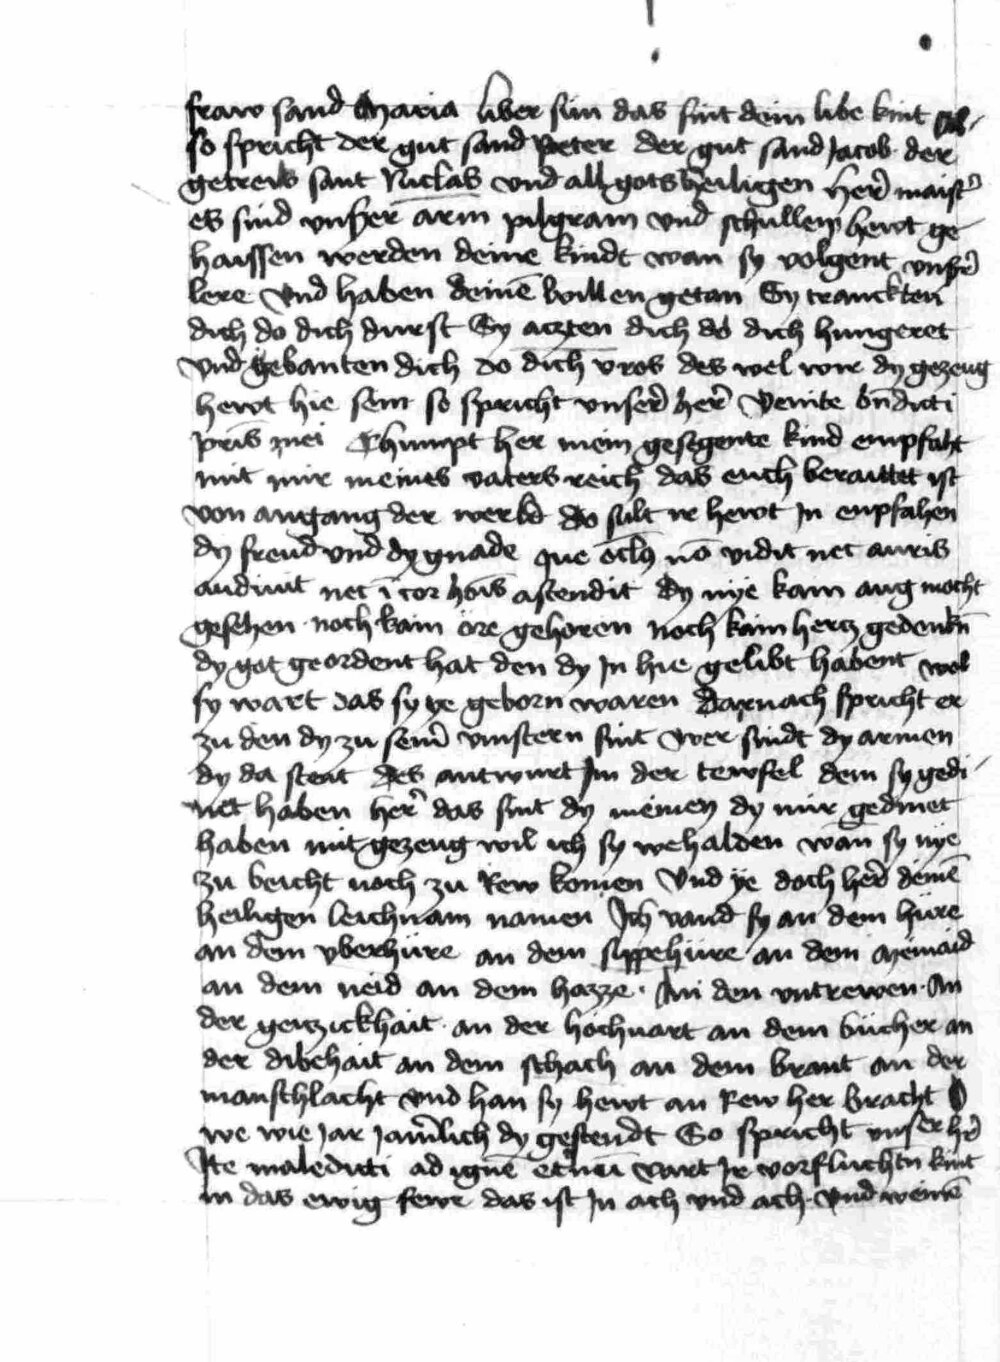 fraw sand Maria liber sun das sint dein libe kint Al-
so spricht der gut sand Peter der gut sand Jacob der
getrew sant Niclas vnd all gots heiligen her maist
es sind vnser arm pilgram vnd schullen hewt ge
haissen werden deine kindt wan sy volgent vnser
lere Vnd haben deinē willen getan Sy tranckten
dich do dich durst Sy aczten dich do dich hungeret
vnd gebanten dich do dich vros des wel wir dy gezeug
hewt hie sein so spricht vnser her Venite bn̄dicti
pr̄is mei Chumpt her mein gesegente kind empfaht
mit mir meines vaters reich das euch beraittet ist
von angang der werld do sult ir hewt In enpfahen
dy freud vnd dy gnade que oclꝰ nō vidit nec auris
audiuit nec ī cor hōis ascendit Dy nye kain aug mocht
gesehen noch kain ore gehoren noch kain hercz gedenkn̄
dy got geordent hat den dy In hie gelibt habent wol
sy wart das sy ye geborn waren Darnach spricht er
zu den dy zu seiner vinstern sint Wer sindt dy armen
dy da steat Des antwurt Im der tewfel dem sy gedi-
net haben her das sint dy meinen dy mir gedinet
haben mit gezeug wil ich sy wehalden wan sy nye
zu beicht noch zu Rew komen Vnd ye doch her deinē
heiligen leichnam namen Ich vand sy an dem hure
an dem vberhure an dem sippehure an dem meinaid
an dem neid an dem hazze. An den vntrewen. An
der geiczickhait. an der hochuart an dem bucher an
der dibehait an dem schach an dem brant an der
manschlacht vnd han sy hewt an Rew her bracht O
we wie Jar Jamerlich dy gestendt So spricht vnser her
Ite maledicti ad ignē etnū Vart Ir vorfluchtn kint
in das ewig fewr das ist In ach vnd ach. vnd weinē